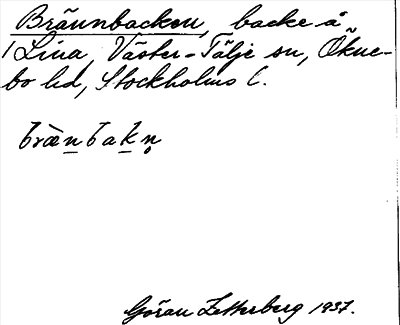 Bräunbacken, backe å
Lina, Väster-Tälje sn, Ökne-
bo hd, Stockholms l.
bræ̀nbakn̥
Göran Zetterberg 1937.